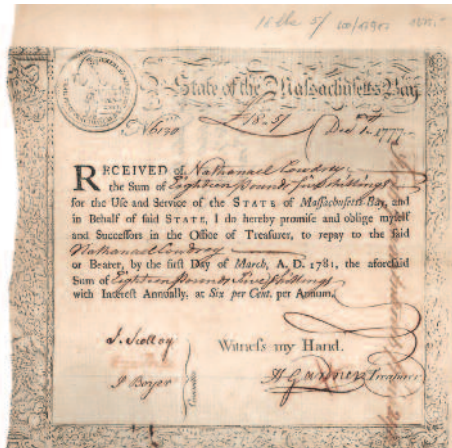 State of the Massachusetts-Bay
£18.5/
Decr 1. 1777
RECEIVED of Nathanael Cowdrey
the Sum of Eighteen pounds five shillings
for the Use and Service of the STATE of Massachusetts-Bay, and
in Behalf of said STATE, I do hereby promise and oblige myself
and Successors in the Office of Treasurer, to repay to the said
Nathanael Cowdrey
or Bearer, by the first Day of March, A. D. 1781, the aforesaid
Sum of Eighteen pounds five shillings
with Interest Annually, at Six per Cent. per Annum.
Witness my Hand.
J. Scollay
J Boyer
H Gardner Treasurer